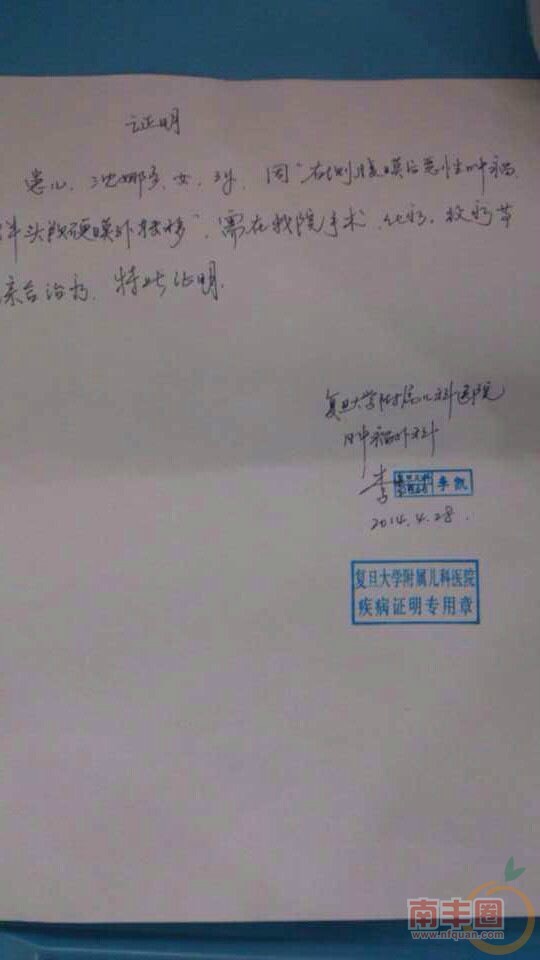 证明
患儿,池娜多,女,3岁,因“右侧腹膜后恶性肿瘤,
伴头颅硬膜外转移”,需在我院手术、化疗、放疗等
综合治疗,特此证明.
复旦大学附属儿科医院
肿瘤外科
李 李凯
2014.4.28.
复旦大学附属儿科医院
疾病证明专用章
南丰圈
www.nfquan.com